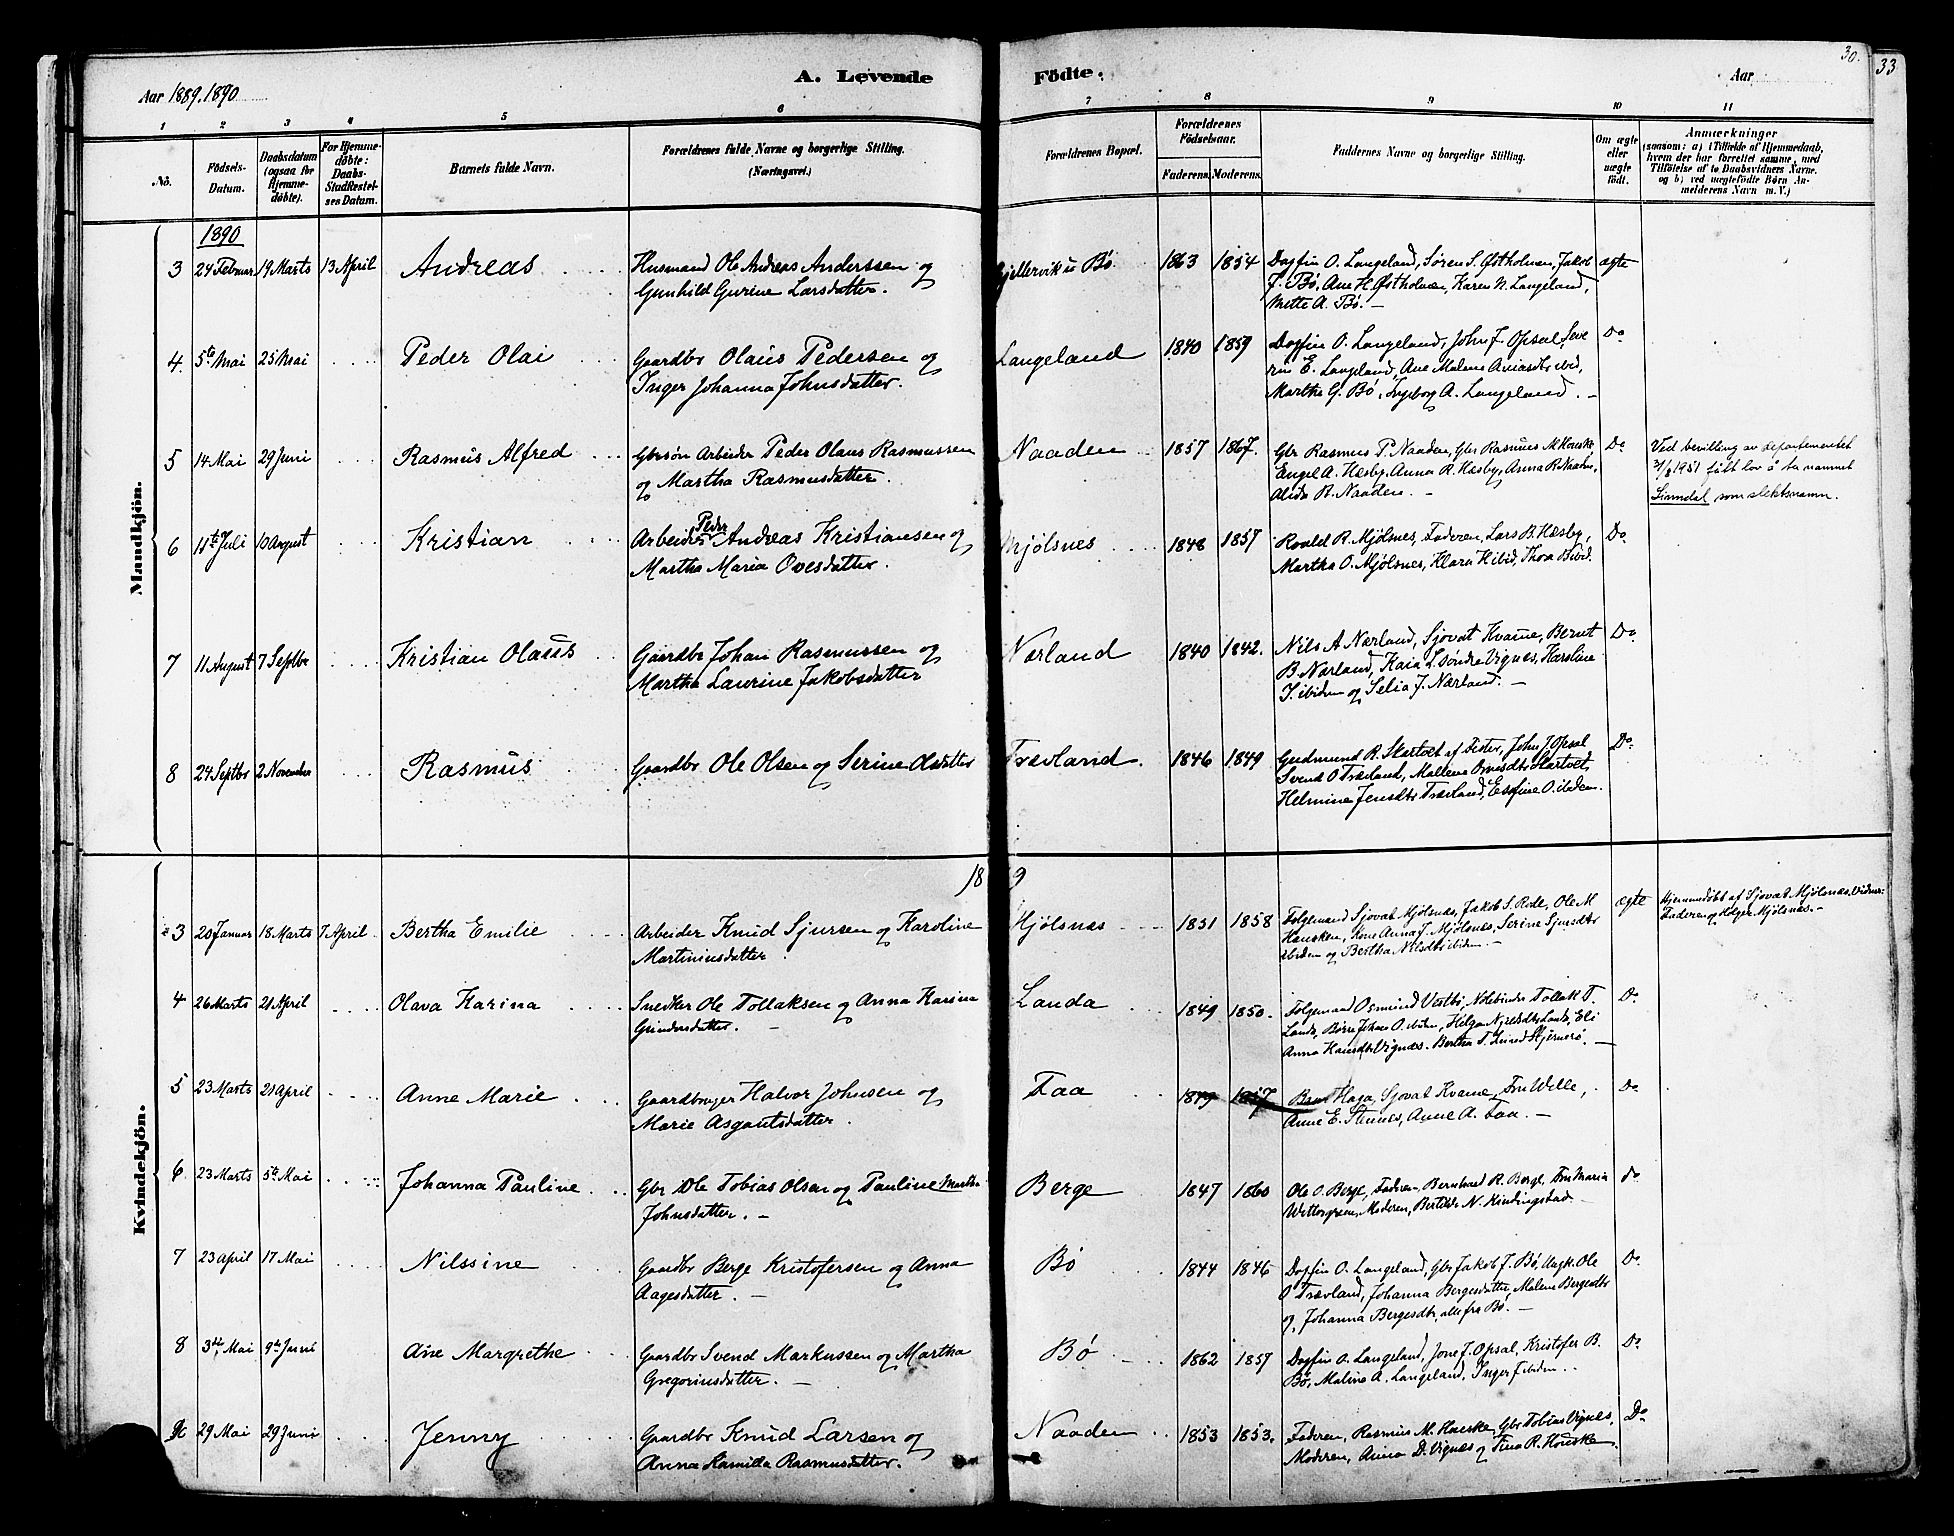 30.
33
A. Levende Födte.
Aar 1889. 1890
Aar
1 2 3 4 5 6 7 8 9 10 11
No.
Födsels-Datum.
Daabsdatum (ogsaa for Hjemmedöbte).
For Hjemmedøbte: Daabs-Stadfæstelses Datum.
Barnets fulde Navn.
Forældrenes fulde Navne og borgerlige Stilling. (Næringsvei.)
Forældrenes Bopæl.
Forældrenes Födselsaar.
Faderens. Moderens.
Faddernes Navne og borgerlige Stilling.
Om ægte eller uægte födt.
Anmærkninger
(saasom: a) i Tilfælde af Hjemmedaab, hvem der har forrettet samme, med Tilföielse af to Daabsvidners Navne. og b) ved uægtefödte Børn Anmelderens Navn m. V.)
Mandkjön.
1890
3 24 Februar 19 Marts 13 April Andreas Husmand Ole Andreas Anderssen og Bø. 1863 1854 Dagfin O. Langeland, Søren S. Østholmen, Jakob ægte
Gunhild Gurine Larsdatter. J. Bø, Ane H. Østholmen, Karen N. Langeland,
Mette A. Bø. –
4. 5te Mai 25 Mai Peder Olai Gaardbr Olaus Pedersen og Langeland 1840 1859 Dagfin O. Langeland, John J. Opsal, Seve Do
Inger Johanna Johnsdatter. rin E. Langeland, Ane Malene ibid,
Martha G. Bø, Ingeborg A. Langeland. –
5 14 Mai 29 Juni Rasmus Alfred Gbrsøn Arbeider Peder Olaus Rasmussen Naaden 1857 1867. Gbr Rasmus P. Naaden, Gbr Rasmus M. Hauske Do Ved bevilling av departementet
og Martha Rasmusdatter. Engel A. Hæsby, Anna R. Hæsby, Anna R. Naaden, 1951 fått lov å ta namnet
Alida R. Naaden. – som slektsnamn.
6 11te Juli 10 August Kristian Arbeider Peder Andreas Kristiansen og Mjølsnes 1848 1857 Roald R. Mjølsnes, Faderen, Lars B. Hæsby, Do
Martha Maria Ovesdatter. Martha O. Mjølsnes, Klara H ibid, Thora B ibid.
7 11 August 7 Septbr Kristian Olaus Gaardbr Johan Rasmussen og Nærland 1840 1842. Nils A Nærland, Sjovat Kvame, Bernt Do
Martha Laurine Jakobsdatter B. Nærland, Kaia L. søndre Vignes, Karoline
I. ibiden og Selia J. Nærland. –
8 24 Septbr 2 November Rasmus Gaardbr Ole Olsen og Serine Olsdatter Trævland. 1846 1849 Gudmund R. Skartvet af Fister, John J. Opsal Do
Svend O Trævland, Mallene Skartvet,
Helmine Jensdtr Trævland, O. ibidem.
1889
Kvindekjön.
3 20 Januar 18 Marts 7 April Bertha Emilie Arbeider Knud Sjursen og Karoline Mjølsnæs 1851 1858 Følgemand Sjovat Mjølsnæs, Jakob S. Ole M ægte Hjemmedøbt af Sjovat Mjølsnæs, Vidner:
Martiniusdatter. Hausken, Kone Anna J. Mjølsnæs, Serine Sjursdtr Faderen og Mjølsnæs. –
ibidem og Bertha Nilsdtr ibidem. –
4 26 Marts 21 April Olava Karina Snedker Ole Tollaksen og Anna Karina Landa 1849 1850. Følgemand Osmund Vestbø, Notebinder Tollak T. Do
datter. – Landa, Børre Johan O. ibidem, Helga Landa, Eli
Anna Hansdtr Vignæs. Bertha T. Hjernerø. –
5 23 Marts 21 April Anne Marie Gaardbruger Halvor Johnsen og Faa 1849 1857 Haga, Sjovat Kvame, Fru Wille, Do
Marie Asgautsdatter. Anne E. Stennes, Anne A. Faa. –
6 23 Marts 5te Mai Johanna Pauline Gbr Ole Tobias Olsen og Pauline Martha Berge 1847 1860 Ole O. Berge, Faderen, Bernhard R. Berge, Fru Maria Do
Johnsdatter. – Moderen, Bertilde N. Kindingstad. –
7 23 April 17 Mai Nilssine Gaardbr Berge Kristofersen og Anna Bø 1844 1846 Dagfin O. Langeland, Gbr Jakob J. Bø, Ungk. Ole Do
Aagesdatter. – O Trævland, Johanna Bergesdatter, Malene Bergesdtr
og Johanna Bergesdtr, alle fra Bø. –
8 3die Mai 9de Juni Ane Margrethe Gaardbr Svend Markussen og Martha Bø 1862 1857 Dagfin O. Langeland, Jone J. Opsal, Kristofer B. Do
Gregoriusdatter. – Bø, Maline A. Langeland, Inger J. ibidem.
9 29 Mai 29 Juni Jenny Gaardbr Knud Larsen og Naaden 1853 1853. Faderen, Rasmus M. Hauske, Gbr Tobias Vignæs, Do
Anna Kamilla Rasmusdatter. Moderen, Anna D. Vignæs og Tina R. Hauske.